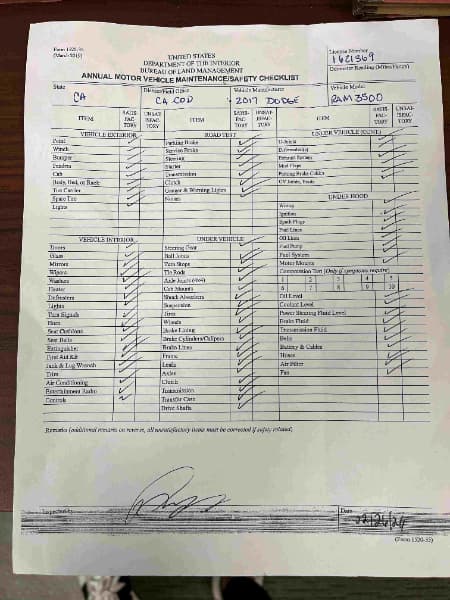 Form 1520-35
(March 2015)
UNITED STATES
DEPARTMENT OF THE INTERIOR
BUREAU OF LAND MANAGEMENT
ANNUAL MOTOR VEHICLE MAINTENANCE/SAFETY CHECKLIST
License Number
1621369
Odometer Reading (Miles/Hours)
State
CA
District/Field Office
CA COD
Vehicle Manufacturer
2017 DODGE
Vehicle Model
RAM 3500
ITEM SATIS-FAC-TORY UNSAT-ISFAC-TORY ITEM SATIS-FAC-TORY UNSAT-ISFAC-TORY ITEM SATIS-FAC-TORY UNSAT-ISFAC-TORY
VEHICLE EXTERIOR
Paint
Winch
Bumper
Fenders
Cab
Body, Bed, or Rack
Tire Carrier
Spare Tire
Lights
VEHICLE INTERIOR
Doors
Glass
Mirrors
Wipers
Washers
Heater
Defrosters
Lights
Turn Signals
Horn
Seat Cushions
Seat Belts
Extinguisher
First Aid Kit
Jack & Lug Wrench
Trim
Air Conditioning
Entertainment Radio
Controls
ROAD TEST
Parking Brake
Service Brake
Steering
Starter
Transmission
Clutch
Gauges & Warning Lights
Noises
UNDER VEHICLE
Steering Gear
Ball Joints
Turn Stops
Tie Rods
Axle Joints (4x4)
Cab Mounts
Shock Absorbers
Suspension
Tires
Wheels
Brake Lining
Brake Cylinders/Calipers
Brake Lines
Frame
Leaks
Axles
Clutch
Transmission
Transfer Case
Drive Shafts
UNDER VEHICLE (CONT.)
U-Joints
Differential(s)
Exhaust System
Mud Flaps
Parking Brake Cables
CV Joints, Boots
UNDER HOOD
Wiring
Ignition
Spark Plugs
Fuel Lines
Oil Lines
Fuel Pump
Fuel System
Motor Mounts
Compression Test (Only if symptoms require)
1 2 3 4 5
6 7 8 9 10
Oil Level
Coolant Level
Power Steering Fluid Level
Brake Fluid
Transmission Fluid
Belts
Battery & Cables
Hoses
Air Filter
Fan
Remarks (additional remarks on reverse, all unsatisfactory items must be corrected if safety related)
Inspected by
Date
02/26/24
(Form 1520-35)